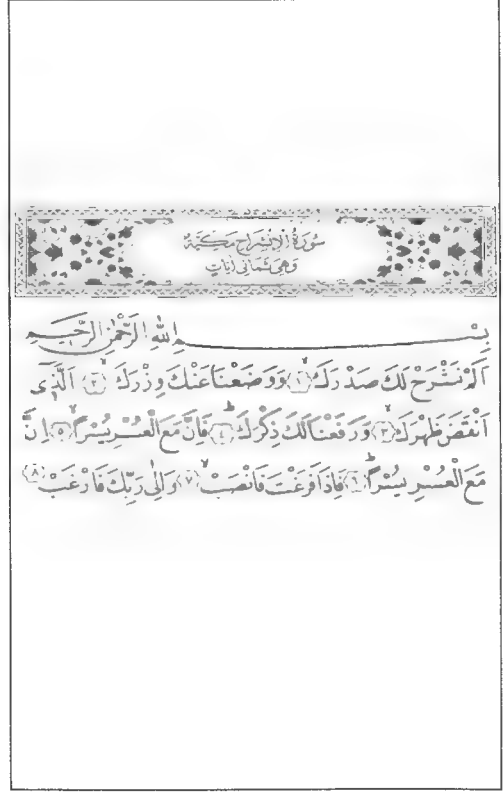 سُورَةُ الْاِنْشِرَاحِ مَكِّيَّةٌ
وَهِيَ ثَمَانِي اٰيَاتٍ
بِسْمِ اللّٰهِ الرَّحْمٰنِ الرَّحٖيمِ
اَلَمْ نَشْرَحْ لَكَ صَدْرَكَۙ ﴿١﴾ وَوَضَعْنَا عَنْكَ وِزْرَكَۙ ﴿٢﴾ اَلَّذٖى
اَنْقَضَ ظَهْرَكَۙ ﴿٣﴾ وَرَفَعْنَا لَكَ ذِكْرَكَؕ ﴿٤﴾ فَاِنَّ مَعَ الْعُسْرِ يُسْرًاۙ ﴿٥﴾ اِنَّ
مَعَ الْعُسْرِ يُسْرًاؕ ﴿٦﴾ فَاِذَا فَرَغْتَ فَانْصَبْۙ ﴿٧﴾ وَاِلٰى رَبِّكَ فَارْغَبْ ﴿٨﴾